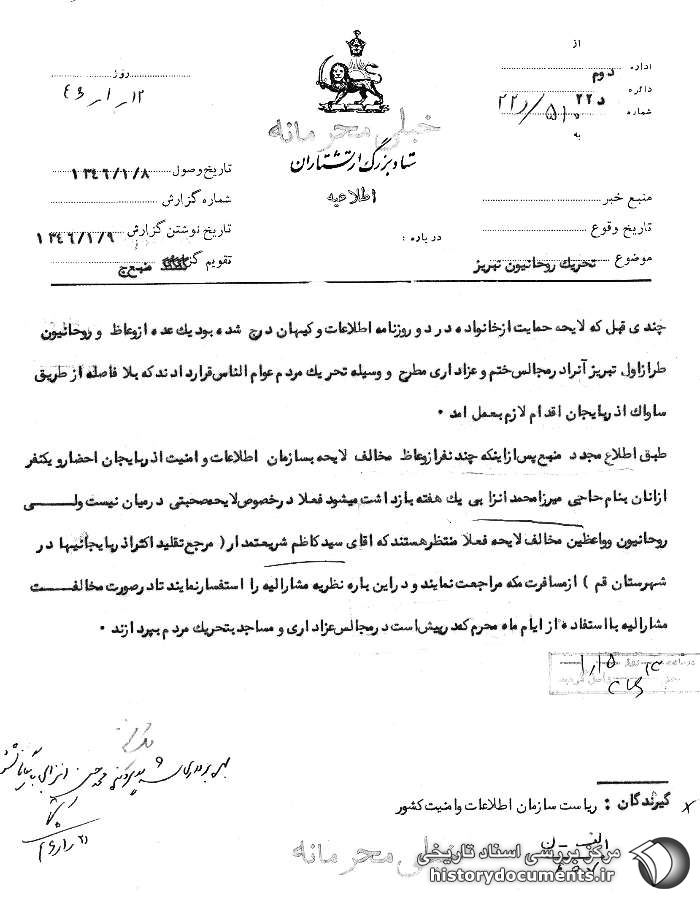 از
اداره دوم
دائره د۲۲
شماره ۵۱۰/د۲۲
به
روز
۱۲ر۱ر۴۶
خیلی محرمانه
ستاد بزرگ ارتشتاران
اطلاعیه
منبع خبر
تاریخ وقوع
موضوع تحریك روحانیون تبریز
درباره :
تاریخ وصول ۱۳۴۶/۱/۸
شماره گزارش
تاریخ نوشتن گزارش ۱۳۴۶/۱/۹
تقویم منبع ج
چندی قبل که لایحه حمایت از خانواده در دو روزنامه اطلاعات و کیهان درج شده بود یك عده از وعاظ و روحانیون
طراز اول تبریز آنرا در مجالس ختم و عزاداری مطرح و وسیله تحریك مردم عوام الناس قرار دادند که بلافاصله از طریق
ساواك اذربایجان اقدام لازم بعمل امد ۰
طبق اطلاع مجدد منبع پس از اینکه چند نفر از وعاظ مخالف لایحه بسازمان اطلاعات و امنیت اذربایجان احضار و یکنفر
از انان بنام حاجی میرزا محمد انزابی یك هفته بازداشت میشود فعلا در خصوص لایحه صحبتی در میان نیست ولی
روحانیون و واعظین مخالف لایحه فعلا منتظر هستند که اقای سید کاظم شریعتمدار ( مرجع تقلید اکثر اذربایجانیها در
شهرستان قم ) از مسافرت مکه مراجعت نمایند و در این باره نظریه مشارالیه را استفسار نمایند تا در صورت مخالفت
مشارالیه با استفاده از ایام ماه محرم که در پیش است در مجالس عزاداری و مساجد بتحریك مردم بپردازند ۰
گیرندگان : ریاست سازمان اطلاعات و امنیت کشور
خیلی محرمانه
مرکز بررسی اسناد تاریخی
historydocuments.ir